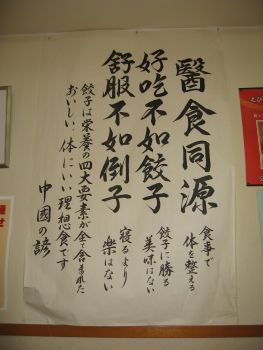 醫食同源
食事で
体を整える
好吃不如餃子
餃子に勝る
美味はない
舒服不如倒子
寝るより
楽はない
餃子は栄養の四大要素が全て含まれた
おいしい、体にいい理想食です
中國の諺